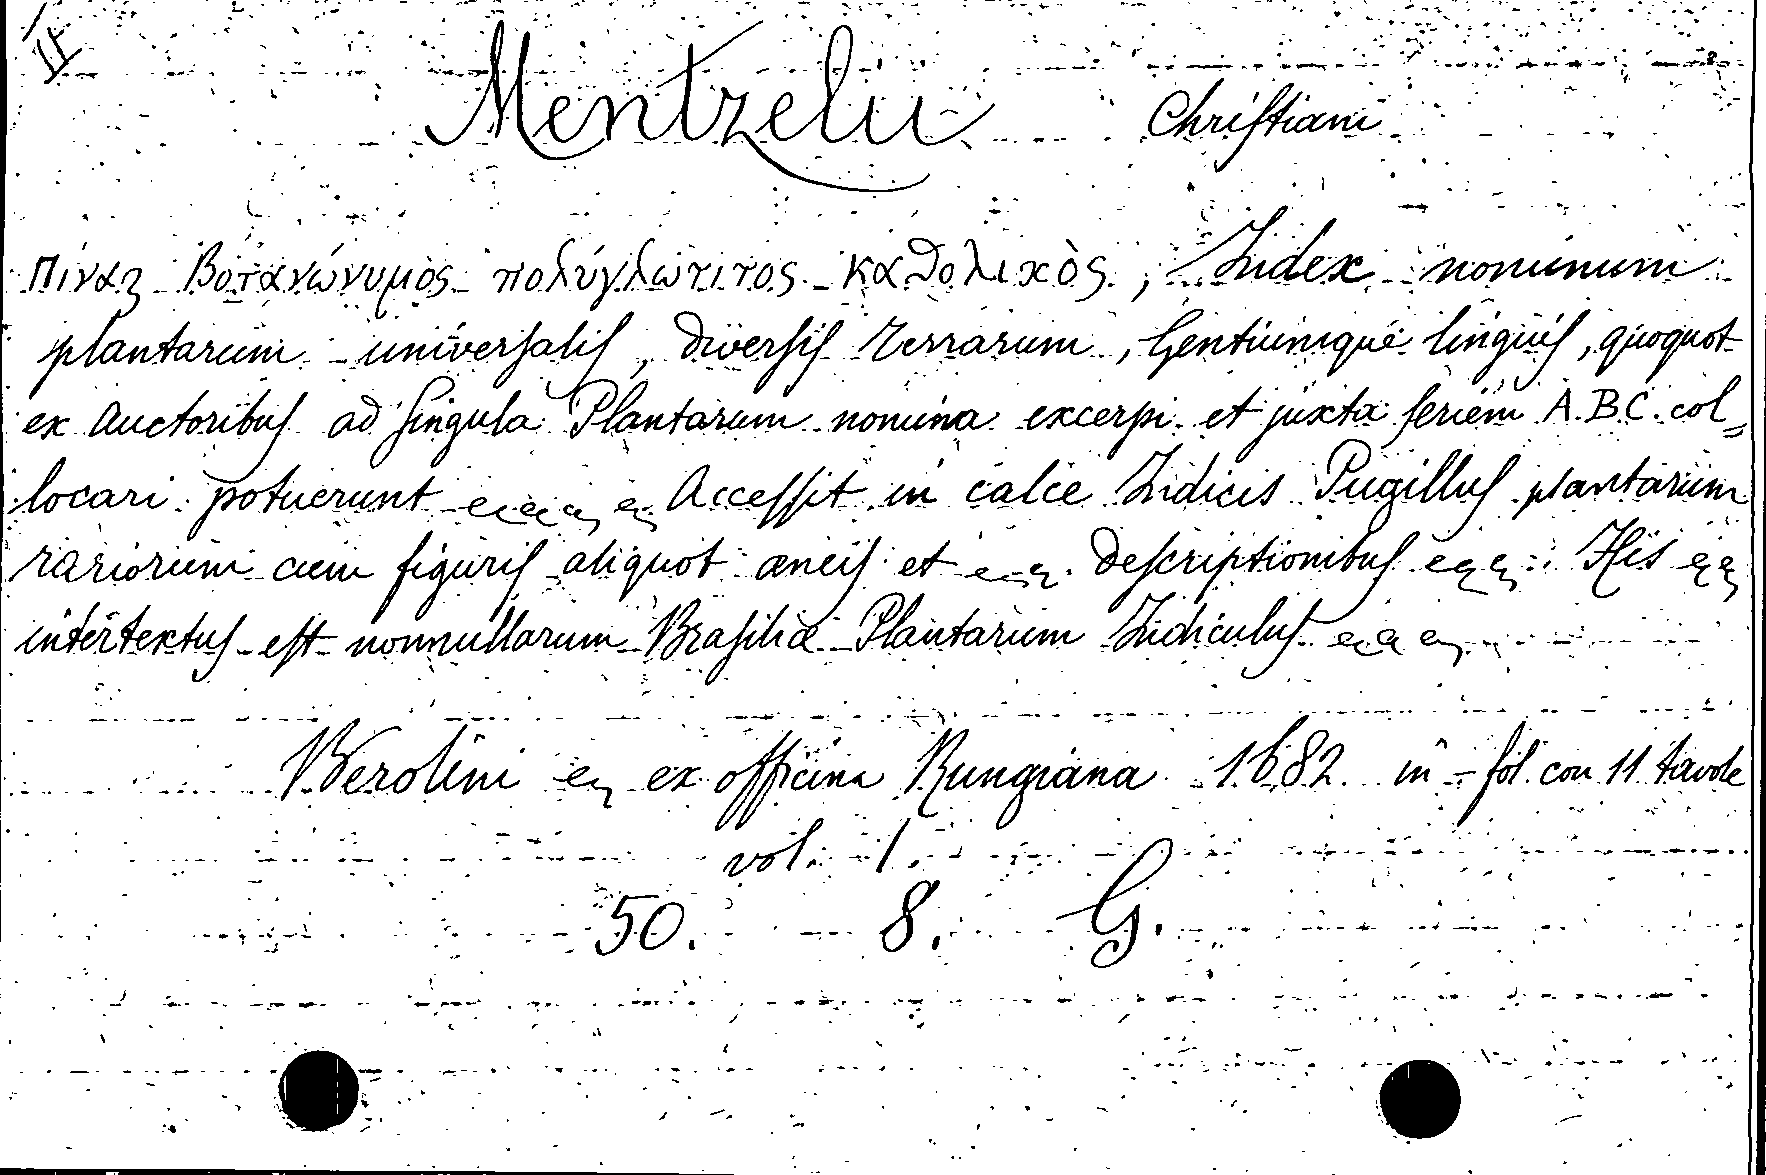 II
Mentzelii Christiani
Πίναξ Βοτανώνυμος πολύγλωττος καθολικὸς, Index nominum
plantarum universalis, diversis terrarum, Gentiumque linguis, quoquot
ex Auctoribus ad singula Plantarum nomina excerpi et juxta seriem A.B.C. col=
locari potuerunt Accessit in calce Indicis Pugillus plantarum
rariorum cum figuris aliquot æneis et descriptionibus His
intertextus est nonnullarum Brasiliæ Plantarum Indiculus
Berolini ex officina Rungiana 1682. in-fol. con 11 tavole
vol. 1.
50. 8. G.